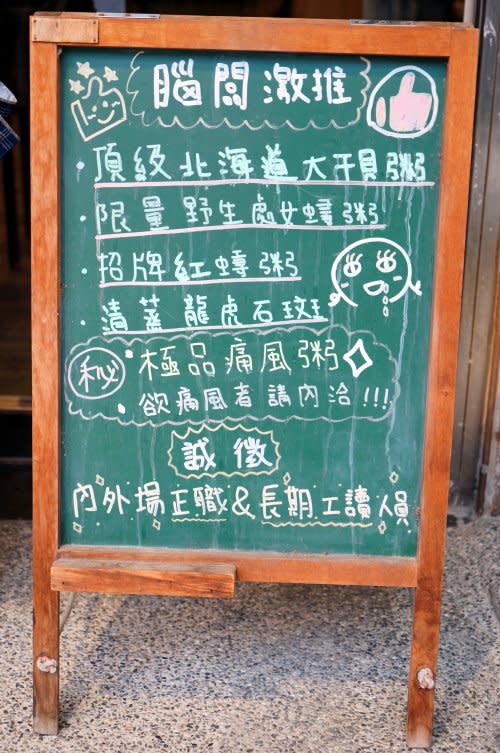 腦闆激推
·頂級北海道大干貝粥
·限量野生處女蟳粥
·招牌紅蟳粥
·清蒸龍虎石斑
秘·極品痛風粥
·欲痛風者請內洽!!!
誠徵
內外場正職&長期工讀人員